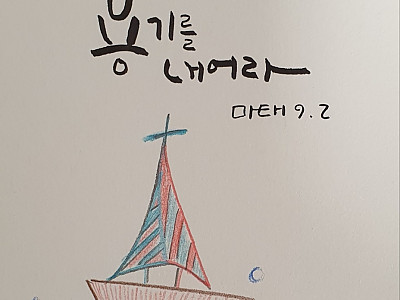 용기를
내어라
마태 9.2